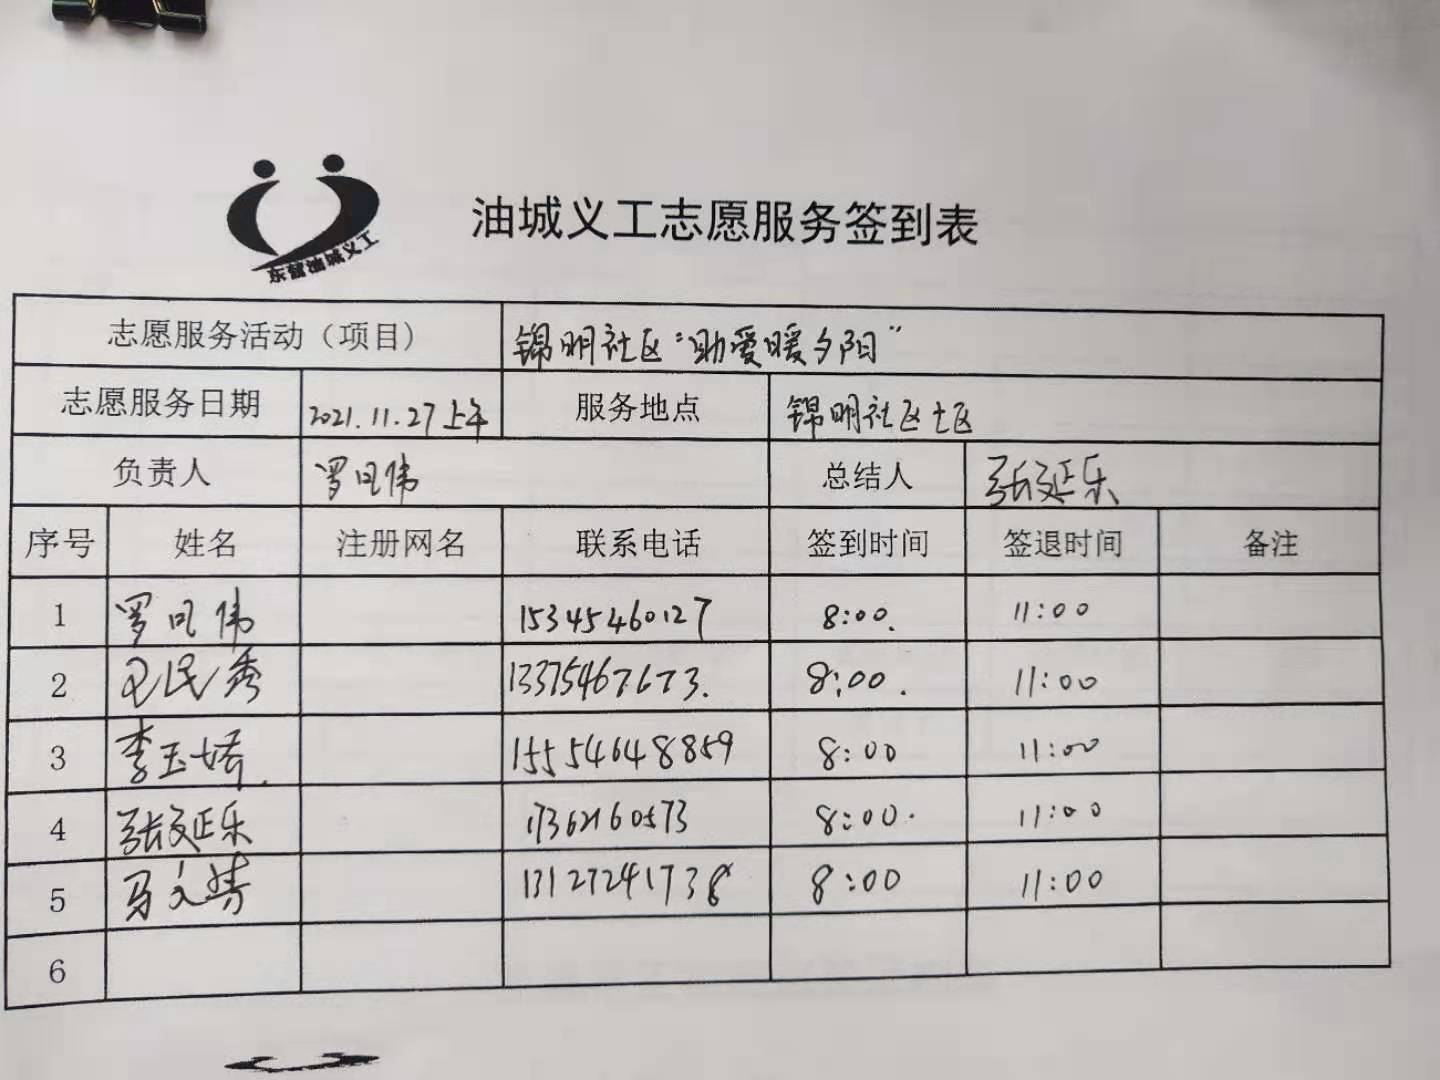 东营油城义工
油城义工志愿服务签到表
志愿服务活动（项目） 锦明社区“助爱暖夕阳”
志愿服务日期 2021.11.27上午 服务地点 锦明社区
负责人 罗凤伟 总结人 张延乐
序号 姓名 注册网名 联系电话 签到时间 签退时间 备注
1 罗凤伟 15345460127 8:00. 11:00
2 民秀 13375467673. 8:00. 11:00
3 李玉娇. 15554648859 8:00 11:00
4 张延乐 17362160573 8:00. 11:00
5 马文涛 13127241738 8:00 11:00
6